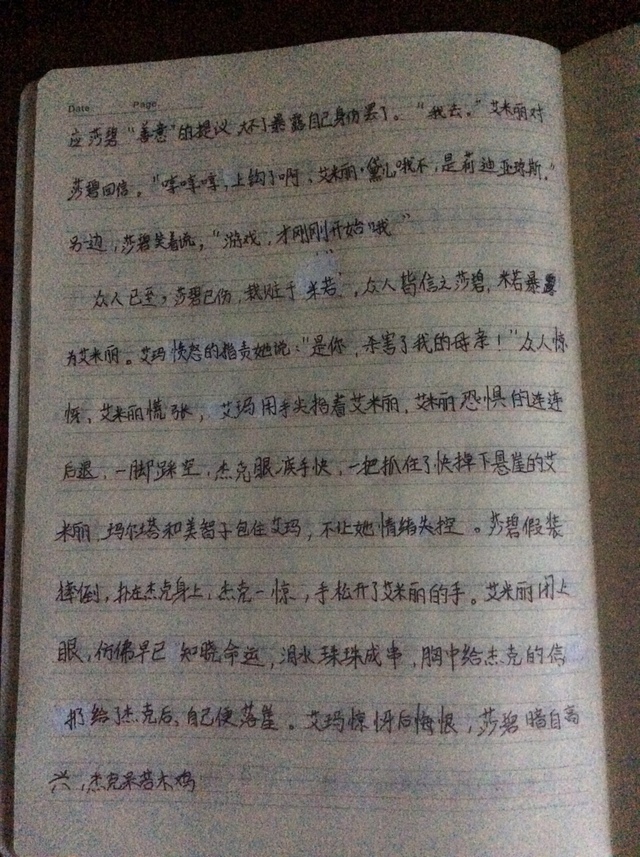 Date Page
应莎碧“善意”的提议,大不了暴露自己身份罢了。“我去。”艾米丽对
莎碧回信。“哼哼哼,上钩了啊,艾米丽·黛儿哦不,是莉迪亚琼斯。”
另边,莎碧笑着说,“游戏,才刚刚开始哦”
众人已至,莎碧已伤,栽脏于“米若”,众人皆信之莎碧,米若暴露
为艾米丽。艾玛愤怒的指责她说:“是你,杀害了我的母亲!”众人惊
讶,艾米丽慌张,艾玛用手尖指着艾米丽,艾米丽恐惧的连连
后退,一脚踩空,杰克眼疾手快,一把抓住了快掉下悬崖的艾
米丽,玛尔塔和美智子包住艾玛,不让她情绪失控。莎碧假装
摔倒,扑在杰克身上,杰克一惊,手松开了艾米丽的手。艾米丽闭上
眼,仿佛早已知晓命运,泪水珠珠成串,胸中给杰克的信
扔给了杰克后,自己便落崖。艾玛惊讶后悔恨,莎碧暗自高
兴,杰克呆若木鸡